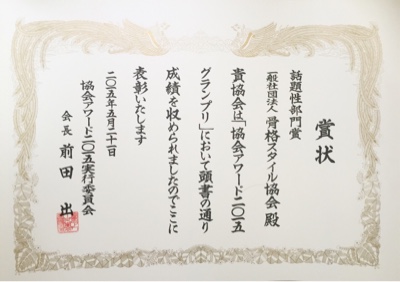 賞状
話題性部門賞
一般社団法人 骨格スタイル協会 殿
貴協会は「協会アワード二〇一五
グランプリ」において頭書の通り
成績を収められましたのでここに
表彰いたします
二〇一五年五月二十一日
協会アワード二〇一五実行委員会
会長 前田 出